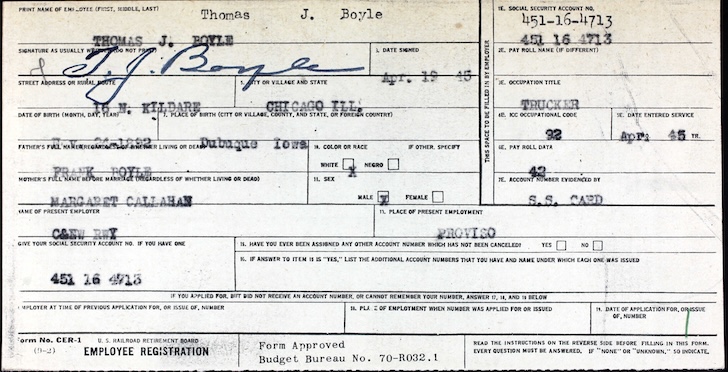 PRINT NAME OF EMPLOYEE (FIRST, MIDDLE, LAST) Thomas J. Boyle
THOMAS J. BOYLE
SIGNATURE AS USUALLY WRITTEN (DO NOT PRINT) 1. DATE SIGNED
T. J. Boyle Apr. 19 45
STREET ADDRESS OR RURAL ROUTE CITY OR VILLAGE AND STATE
15 N. KILDARE CHICAGO ILL.
DATE OF BIRTH (MONTH, DAY, YEAR) PLACE OF BIRTH (CITY OR VILLAGE, COUNTY, AND STATE, OR FOREIGN COUNTRY)
24-1892 Dubuque Iowa
FATHER'S FULL NAME (REGARDLESS OF WHETHER LIVING OR DEAD) COLOR OR RACE IF OTHER, SPECIFY
FRANK BOYLE WHITE X NEGRO
MOTHER'S FULL NAME BEFORE MARRIAGE (REGARDLESS OF WHETHER LIVING OR DEAD) SEX
MARGARET CALLAHAN MALE X FEMALE
NAME OF PRESENT EMPLOYER PLACE OF PRESENT EMPLOYMENT
C&NW RWY PROVISO
THIS SPACE TO BE FILLED IN BY EMPLOYER
1E. SOCIAL SECURITY ACCOUNT NO.
451-16-4713
451 16 4713
2E. PAY ROLL NAME (IF DIFFERENT)
3E. OCCUPATION TITLE
TRUCKER
4E. ICC OCCUPATIONAL CODE 5E. DATE ENTERED SERVICE
92 Apr. 45 YR.
6E. PAY ROLL DATA
42
7E. ACCOUNT NUMBER EVIDENCED BY
S.S. CARD
GIVE YOUR SOCIAL SECURITY ACCOUNT NO. IF YOU HAVE ONE
451 16 4713
15. HAVE YOU EVER BEEN ASSIGNED ANY OTHER ACCOUNT NUMBER WHICH HAS NOT BEEN CANCELED? YES NO
16. IF ANSWER TO ITEM 15 IS "YES," LIST THE ADDITIONAL ACCOUNT NUMBERS THAT YOU HAVE AND NAME UNDER WHICH EACH ONE WAS ISSUED
IF YOU APPLIED FOR, BUT DID NOT RECEIVE AN ACCOUNT NUMBER, OR CANNOT REMEMBER YOUR NUMBER, ANSWER 17, 18, AND 19 BELOW
EMPLOYER AT TIME OF PREVIOUS APPLICATION FOR, OR ISSUE OF, NUMBER
18. PLACE OF EMPLOYMENT WHEN NUMBER WAS APPLIED FOR OR ISSUED
19. DATE OF APPLICATION FOR, OR ISSUE OF, NUMBER
Form No. CER-1
(9-2)
U. S. RAILROAD RETIREMENT BOARD
EMPLOYEE REGISTRATION
Form Approved
Budget Bureau No. 70-R032.1
READ THE INSTRUCTIONS ON THE REVERSE SIDE BEFORE FILLING IN THIS FORM.
EVERY QUESTION MUST BE ANSWERED. IF "NONE" OR "UNKNOWN," SO INDICATE.